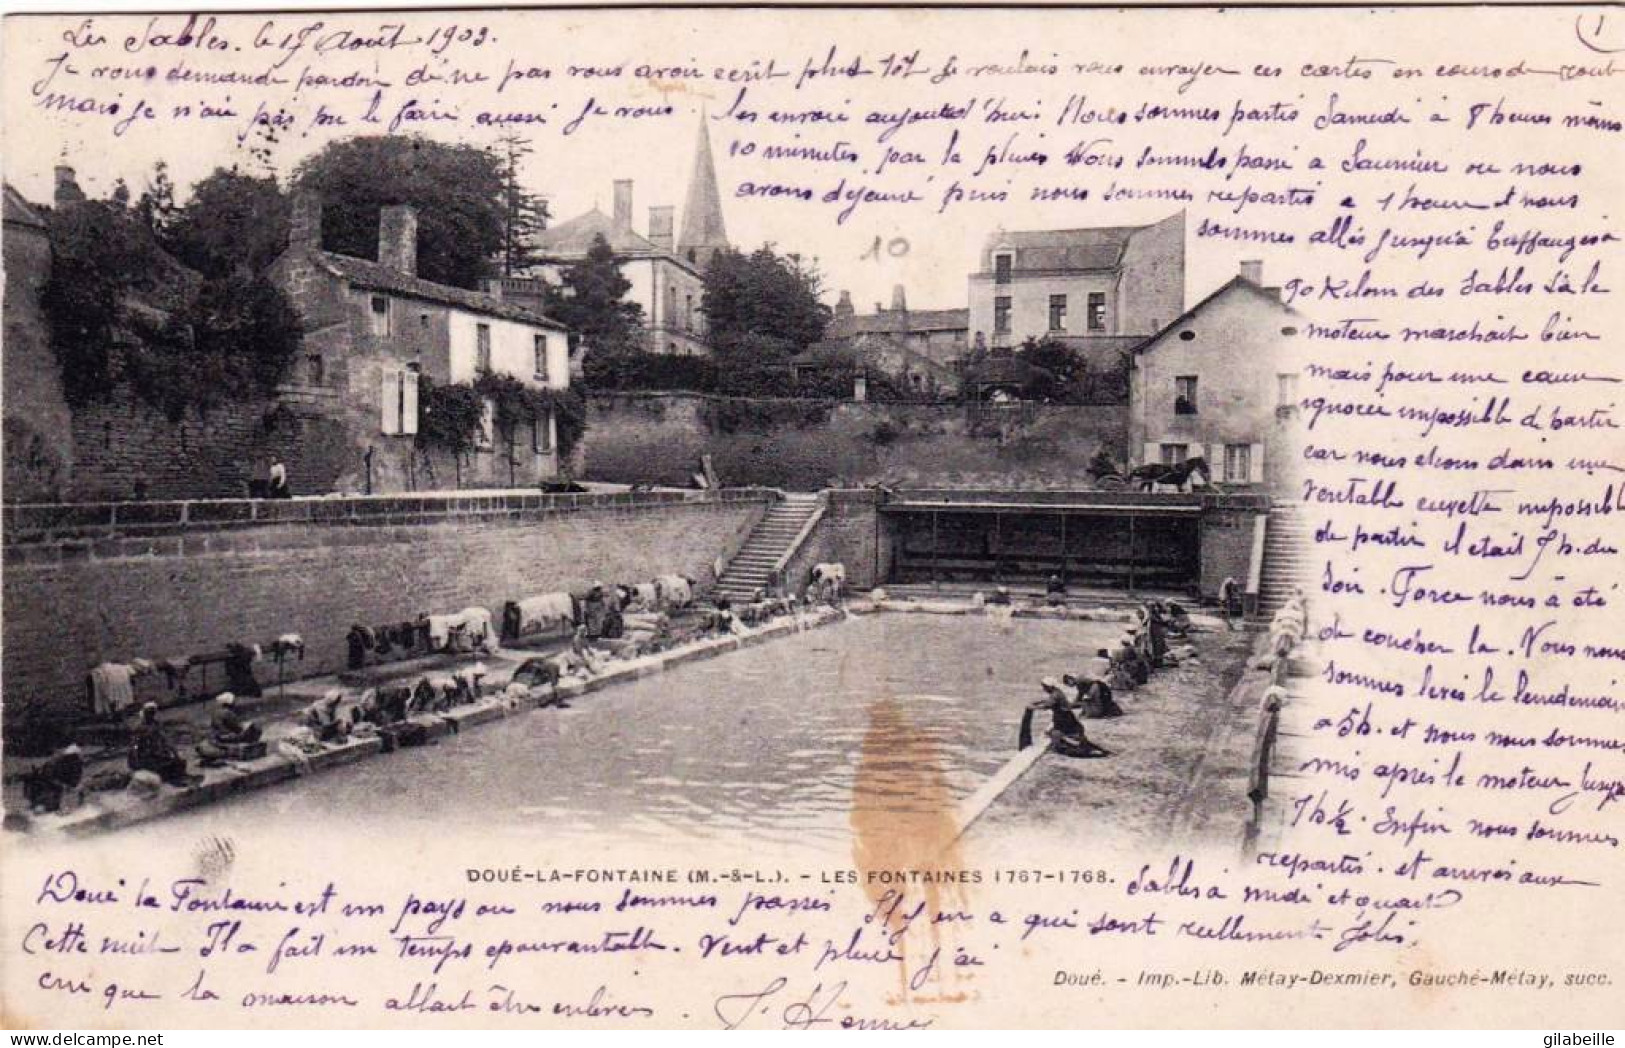 Les Sables. le 17 Août 1903.
Je vous demande pardon de ne pas vous avoir ecrit plus tot Je voulais vous envoyer ces cartes en cours de rout
mais Je n'ai pas pu le faire aussi Je vous les envoie aujourd'hui. Nous sommes partis Samedi à 8 heures moins
10 minutes, par la pluie Nous sommes passé a Saumur ou nous
avons déjeuné puis nous sommes repartis a 1 heure et nous
sommes allés Jusqu'à a
90 Kilom des Sables Là le
moteur marchait bien
mais pour une cause
ignorée impossible de partir
car nous etions dans une
veritable cuvette impossible
de partir il etait 7 h. du
soir. Force nous à été
de coucher la. Nous nous
sommes levés le lendemain
a 5h. et nous nous sommes
mis après le moteur Jusqu'a
7h ½. Enfin nous sommes
repartis. et arrivés aux
Sables à midi et quart
10
1
DOUÉ-LA-FONTAINE (M.-&-L.). - LES FONTAINES 1767-1768.
Doué la Fontaine est un pays ou nous sommes passés Il y en a qui sont reellement Jolis.
Cette nuit Il a fait un temps epouvantable. Vent et pluie J'ai
cru que la maison allait être enlevée.
Doué. - Imp.-Lib. Métay-Dexmier, Gauché-Métay, succ.
gilabeille